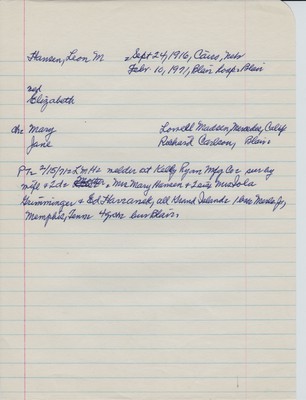 Hansen, Leon M = Sept 24, 1916, Cairo, Nebr
Febr. 10, 1971, Blair Hosp, Blair
Elizabeth
ch: Mary Lowell Madsen, Mercedes, Calif
Jane Richard Carlson, Blair
PTr 2/15/71= LMH= welder at Kelly Ryan Mfg Co= sur by
wife & 2d= Mrs Mary Hansen & 2sis Mrs Iola
Grimminger & Ed Harranek, all Grand Island= 1bro Merle Jr,
Memphis, Tenn 4grch bur Blair=